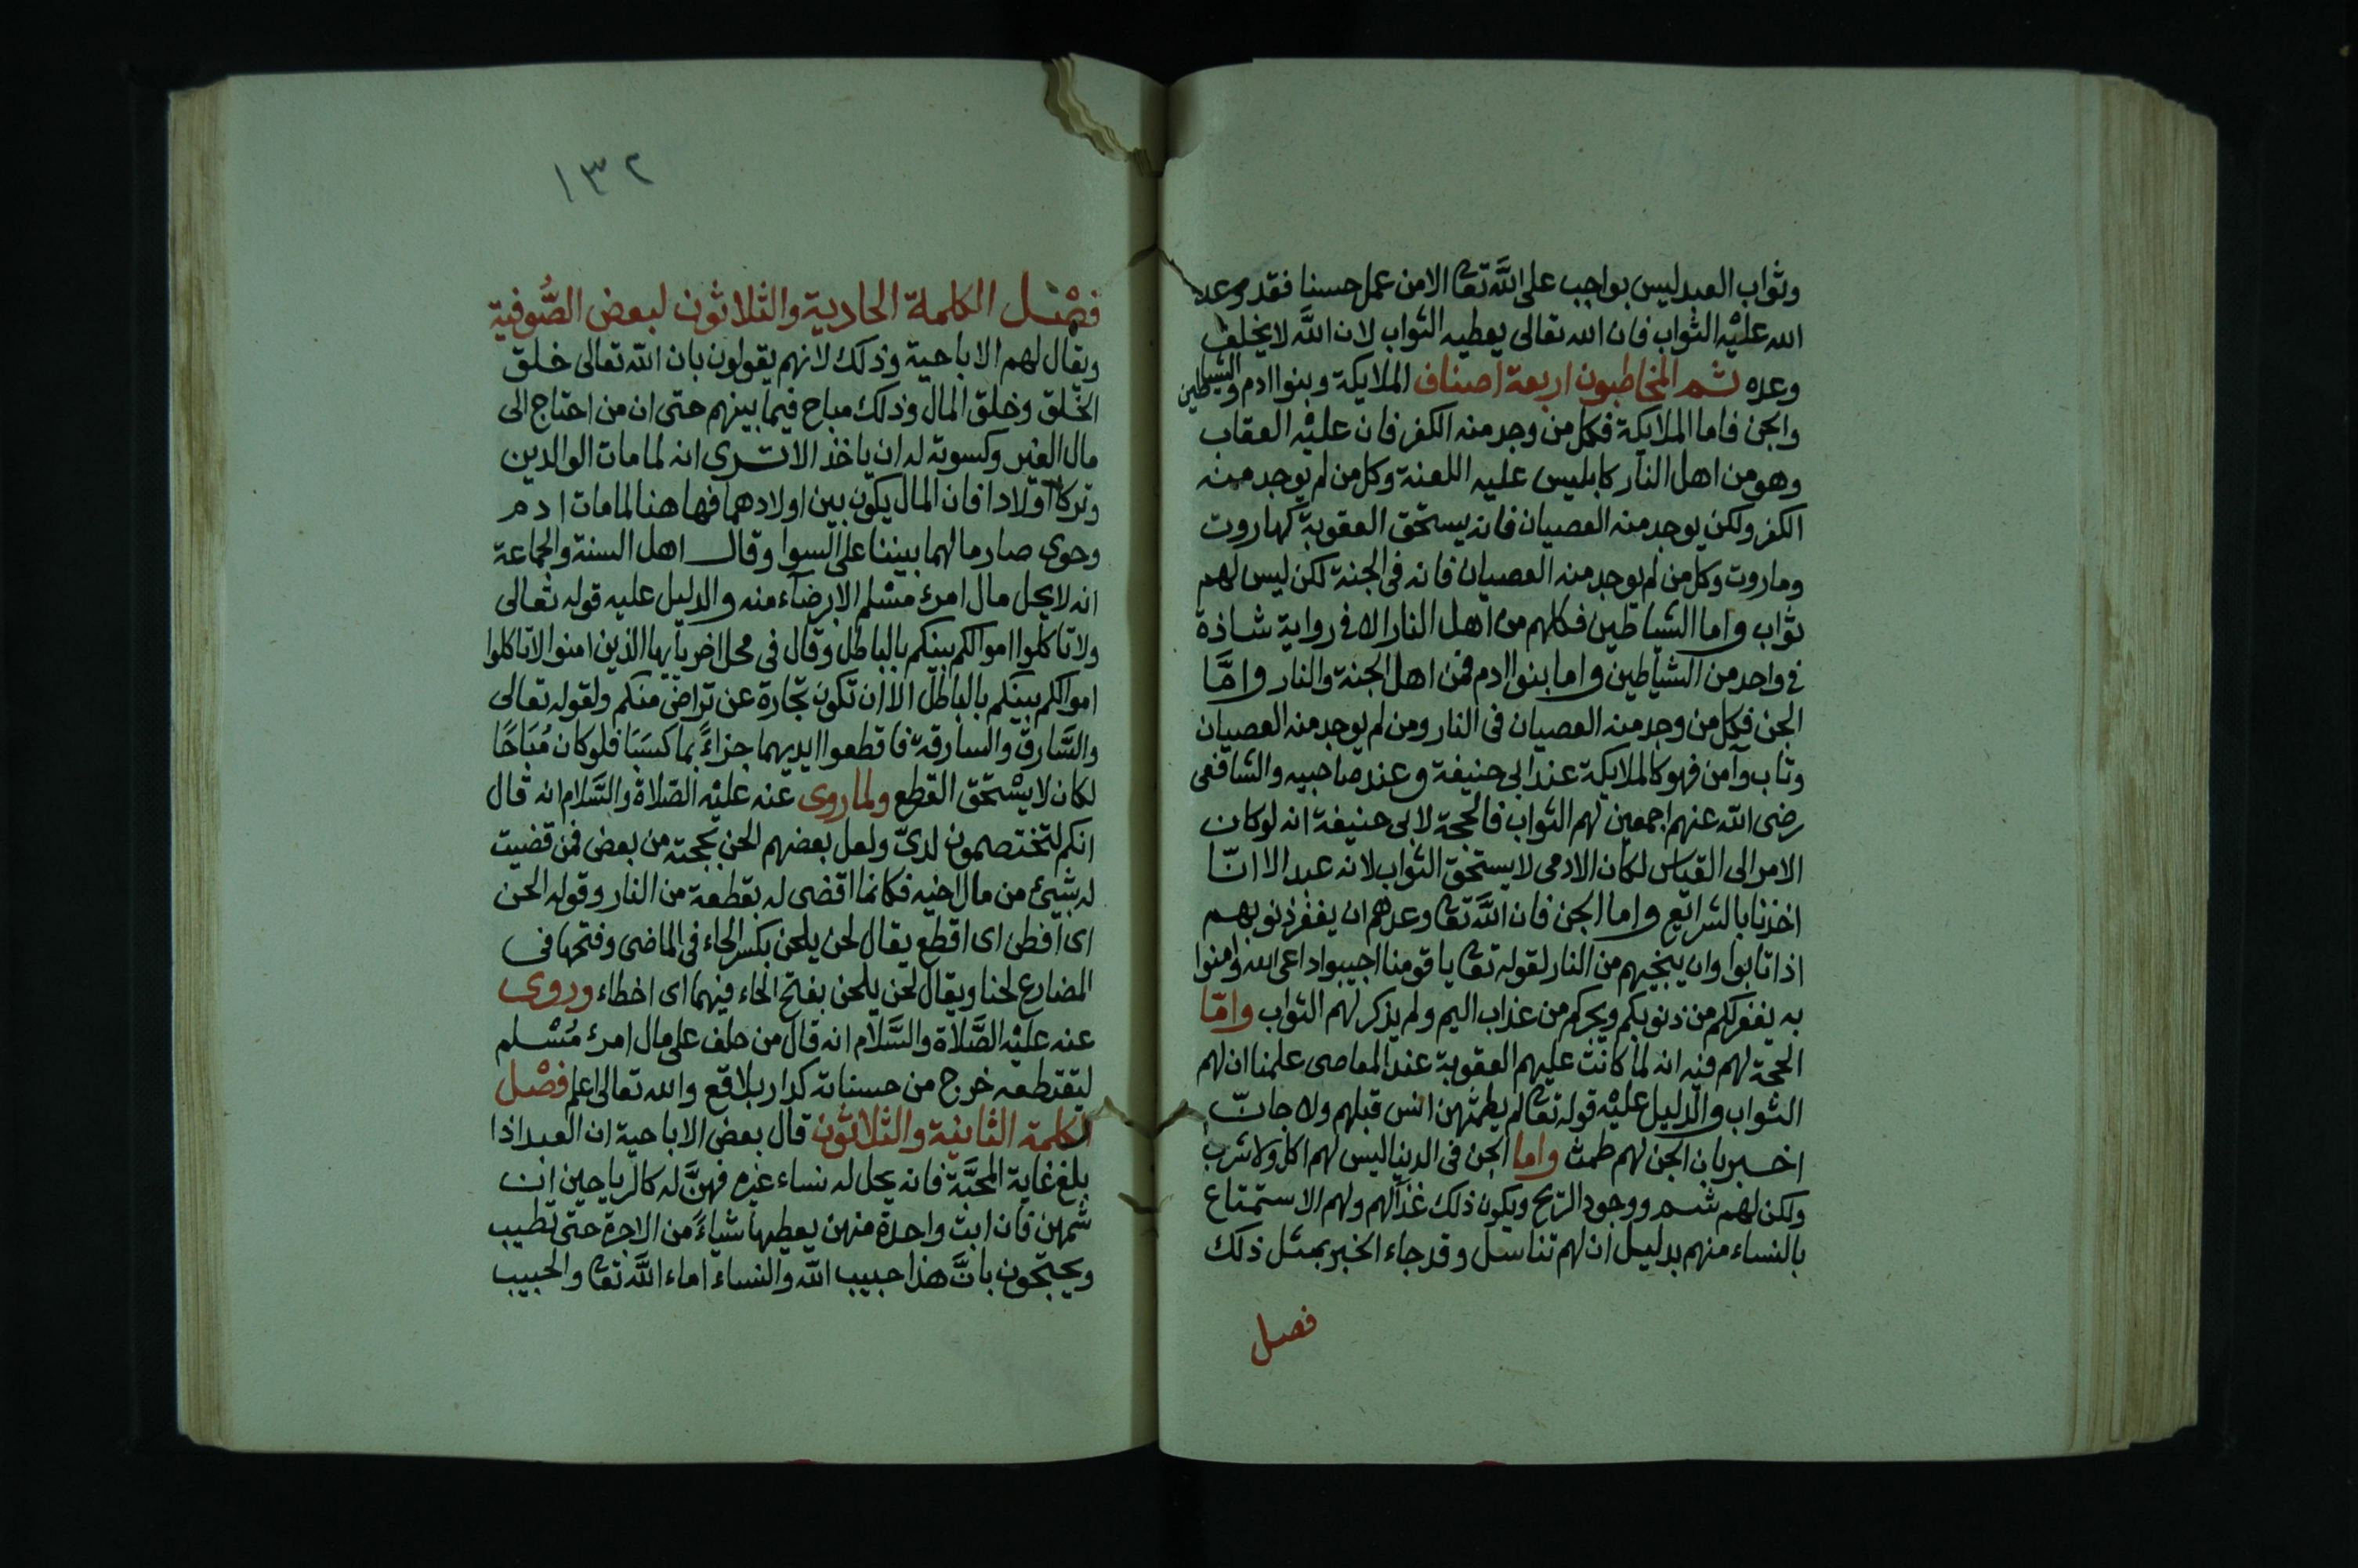 وثواب العبد ليس بواجب على الله تعا الا من عمل حسنا فقد وعد
الله عليه الثواب فان الله تعالى يعطيه الثواب لان الله لا يخلف
وعده ثم المخاطبون اربعة اصناف الملايكة وبنوا ادم والشياطين
والجن فاما الملايكة فكل من وجد منه الكفر فان عليه العقاب
وهو من اهل النار كابليس عليه اللعنة وكل من لم يوجد منه
الكفر ولكن يوجد منه العصيان فانه يستحق العقوبة كهاروت
وماروت وكل من لم يوجد منه العصيان فانه فى الجنة لكن ليس لهم
ثواب واما الشياطين فكلهم من اهل النار الا فى رواية شاذة
فى واحد من الشياطين واما بنوا ادم فمن اهل الجنة والنار وامَّا
الجن فكل من وجد منه العصيان فى النار ومن لم يوجد منه العصيان
وتاب وآمن فهو كالملايكة عند ابى حنيفة وعند صاحبيه والشافعى
رضى الله عنهم اجمعين لهم الثواب فالحجة لابى حنيفة انه لو كان
الامر الى القياس لكان الادمى لا يستحق الثواب لانه عبد الا انّا
اخذنا بالشرائع واما الجن فان اللَّه تعا وعدهم ان يغفر ذنوبهم
اذا تابوا وان ينجيهم من النار لقوله تعا يا قومنا اجيبوا داعى الله وامنوا
به يغفر لكم من ذنوبكم ويجركم من عذاب اليم ولم يذكر لهم الثواب وامّا
الحجة لهم فيه انه لما كانت عليهم العقوبة عند المعاصى علمنا ان لهم
الثواب والدليل عليْه قوله تعا لم يطمثهن انس قبلهم ولا جانّ
اخبر بان الجن لهم طمث واما الجن فى الدنيا ليس لهم اكل ولا شرب
ولكن لهم شم ووجود الريح ويكون ذلك غذآلهم ولهم الاستمتاع
بالنساء منهم بدليل ان لهم تناسل وقد جاء الخبر بمثل ذلك
فصل
١٣٢
فصْل الكلمة الحادية والثلاثون لبعض الصُّوفية
ويقال لهم الاباحية وذلك لانهم يقولون بان الله تعالى خلق
الخلق وخلق المال وذلك مباح فيما بينهم حتى ان من احتاج الى
مال الغير وكسوته له ان ياخذ الا ترى انه لما مات الوالدين
وتركا اولادا فان المال يكون بين اولادهما فها هنا لما مات ادم
وحوى صار مالهما بيننا على السوا وقال اهل السنة والجماعة
انه لا يحل مال امرئ مسْلم الا برضآء منه والدليل عليه قوله تعالى
ولا تاكلوا اموالكم بينكم بالباطل وقال فى محل اخر يا ايها الذين امنوا لا تاكلوا
اموالكم بينكم بالباطل الا ان تكون تجارة عن تراض منكم ولقوله تعالى
والسَّارق والسارقة فاقطعوا ايديهما جزاءً بما كسَبَا فلو كان مُبَاحًا
لكان لا يسْتحق القطع ولما روى عنه عليْه الصّلاة والسَّلام انه قال
انكم لتختصمون لدىّ ولعل بعضهم الحن بحجته من بعض فمن قضيت
له بشيئ من مال اخيه فكانما اقضى له بقطعة من النار وقوله الحن
اى افطن اى اقطع يقال لحن يلحن بكسر الحاء فى الماضى وفتحها فى
المضارع لحنا ويقال لحن يلحن بفتح الحاء فيهما اى اخطاء وروى
عنه عليْه الصَّلاة والسَّلام انه قال من حلف على مال امرئ مُسْلم
ليقتطعه خرج من حسناته كدار بلاقع والله تعالى اعلم فصْل
الكلمة الثانية والثلاثون قال بعض الاباحية ان العبد اذا
بلغ غاية المحبَّة فانه يحل له نساء غيره فهنَّ له كالرياحين ان
شمهن فان ابت واحدة منهن يعطيها شياءً من الاجرة حتى تطيب
ويحتجون بانَّ هذا حبيب الله والنساء اماء اللَّه تعا والحبيب